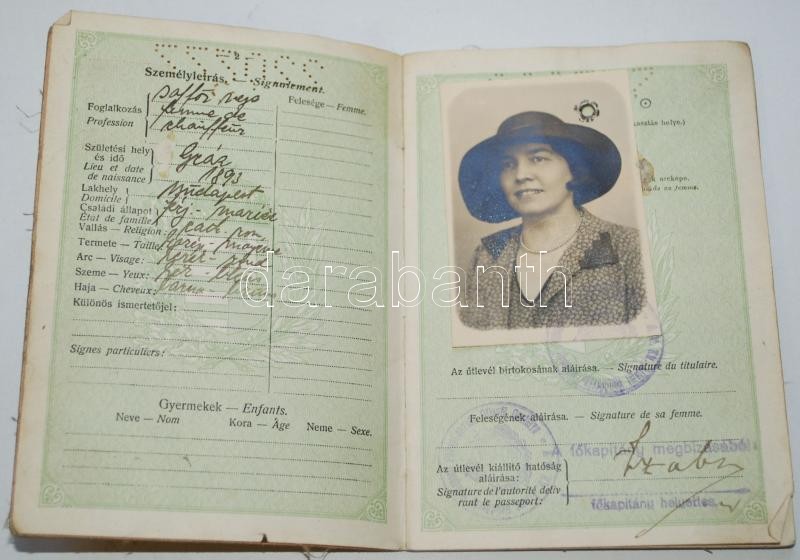 2
Személyleirás. — Signalement.
Foglalkozás
Profession
femme de
chauffeur
Felesége — Femme.
Születési hely
és idő
Lieu et date
de naissance
Graz
1893
Lakhely
Domicile
Budapest
Családi állapot
État de famille
férj. mariée
Vallás — Religion:
cath. rom.
Termete — Taille:
Arc — Visage:
Szeme — Yeux:
Haja — Cheveux:
barna
Különös ismertetőjel:
Signes particuliers:
Gyermekek — Enfants.
Neve — Nom Kora — Âge Neme — Sexe.
Az útlevél birtokosának aláírása. — Signature du titulaire.
Feleségének aláírása. — Signature de sa femme.
A főkapitány megbizásából
Az útlevél kiállító hatóság
aláírása:
Signature de l'autorité déliv
rant le passeport:
Szabó
főkapitány helyettes
darabanth